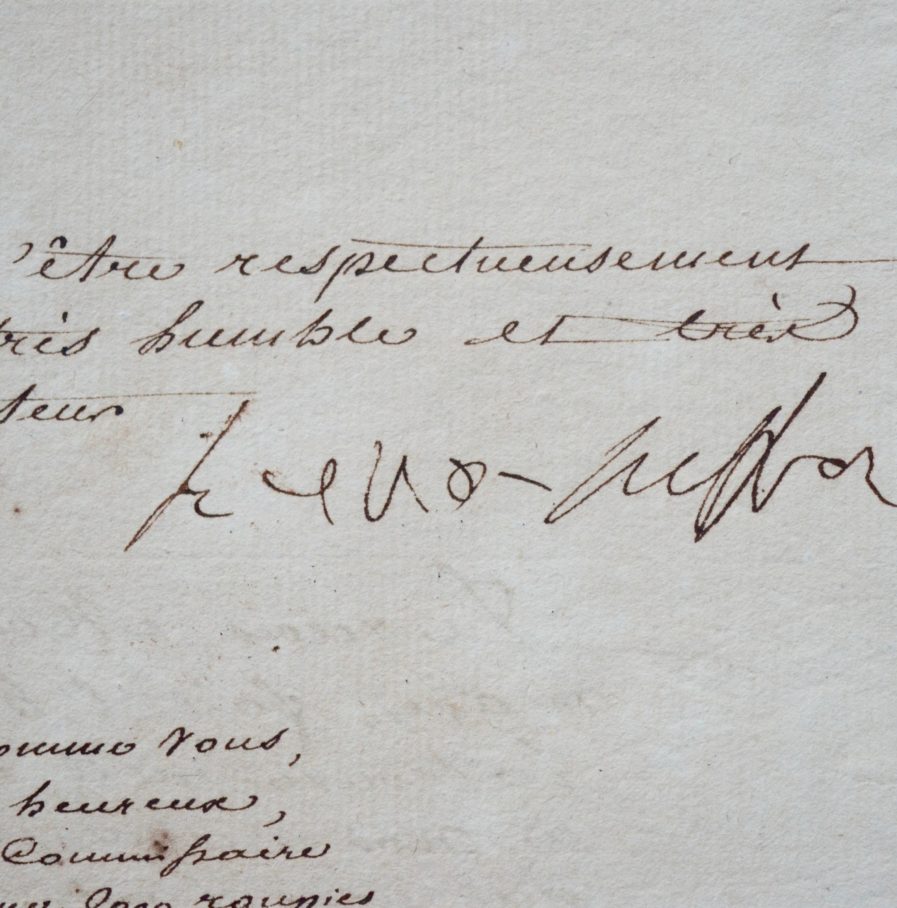 'être respectueusement
très humble et très
teur
omme vous,
heureux,
Commissaire
roupies